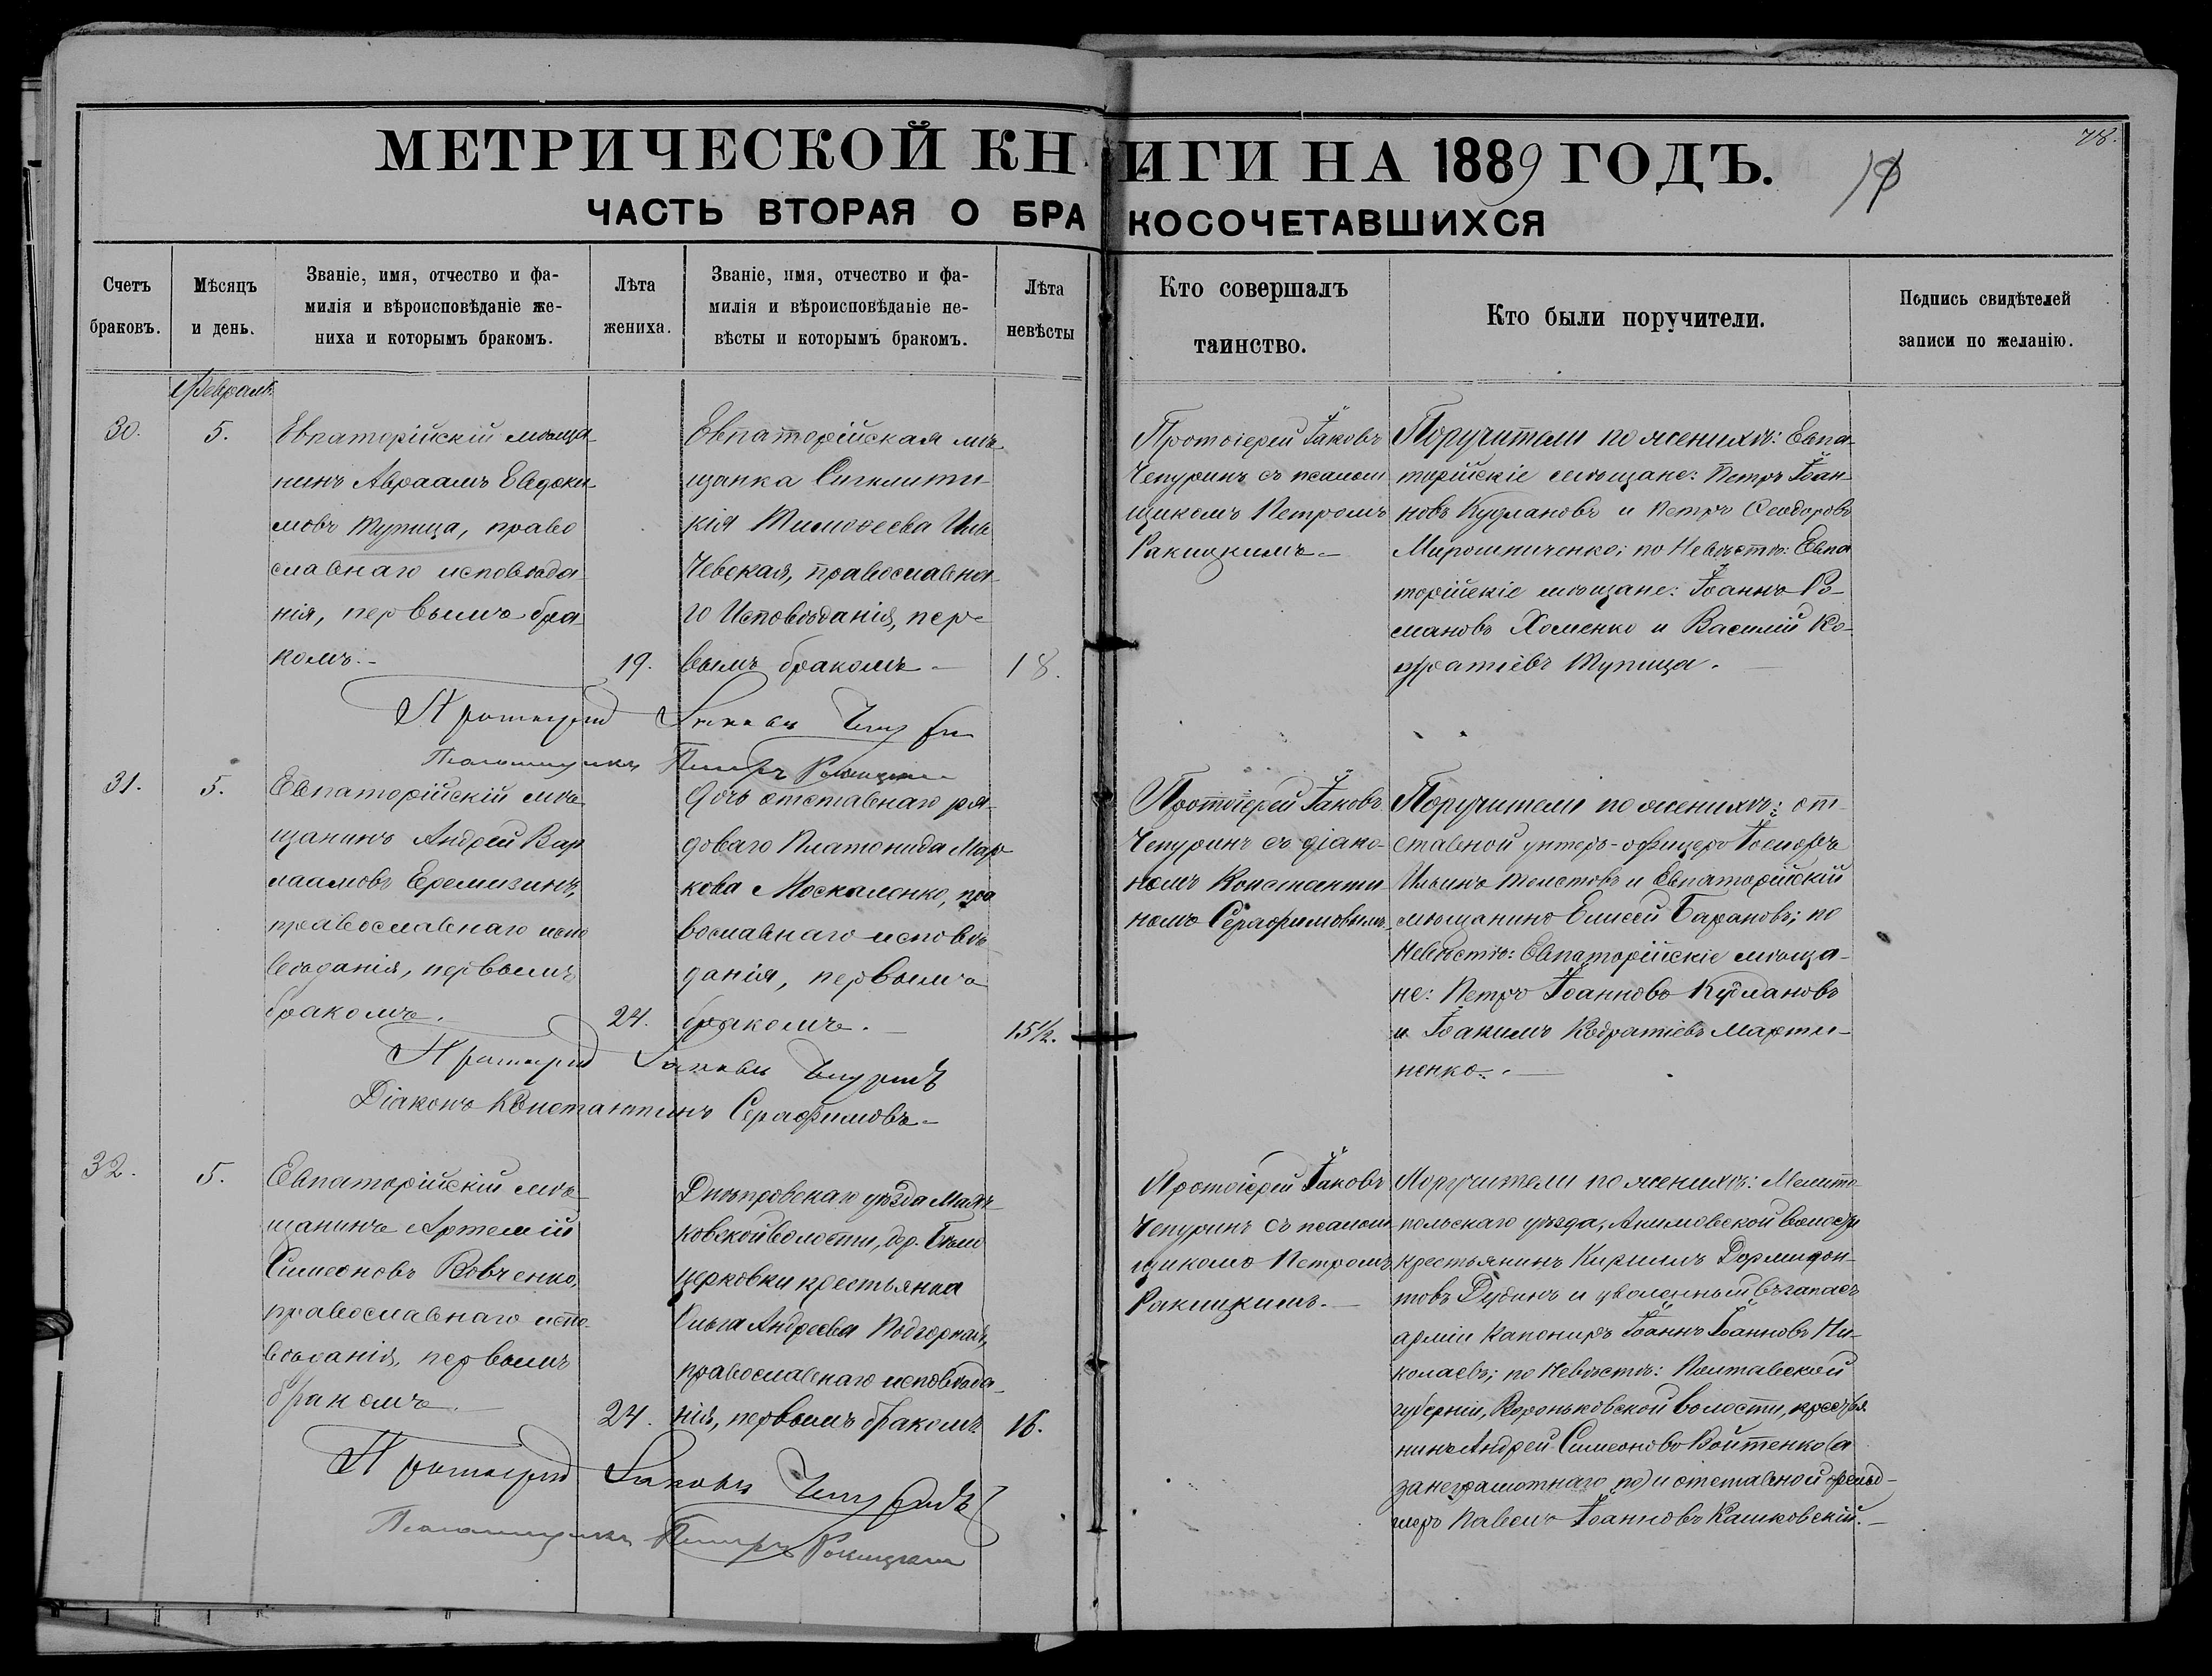 МЕТРИЧЕСКОЙ КНИГИ НА 1889 ГОДЪ.
78.
10
ЧАСТЬ ВТОРАЯ О БРАКОСОЧЕТАВШИХСЯ
Счетъ
браковъ.
Мѣсяцъ
и день.
Званіе, имя, отчество и фа-
милія и вѣроисповѣданіе же-
ниха и которымъ бракомъ.
Лѣта
жениха.
Званіе, имя, отчество и фа-
милія и вѣроисповѣданіе не-
вѣсты и которымъ бракомъ.
Лѣта
невѣсты
Кто совершалъ
таинство.
Кто были поручители.
Подпись свидѣтелей
записи по желанію.
Февраль
30.
5.
Евпаторійскій мѣща-
нинъ Авраамъ Евдоки-
мовъ Тупица, право
славнаго исповѣда-
нія, первымъ бра
комъ.-
19.
Евпаторійская мѣ-
щанка Синклити-
кія Тимоѳеева Иль
чевская, православна-
го Исповѣданія, пер-
вымъ бракомъ -
18.
Протоіерей Іаковъ
Чепуринъ съ псалом
щикомъ Петромъ
Ракицкимъ.-
Поручители по женихѣ: Евпа-
торійскіе мѣщане: Петръ Іоан-
новъ Кудлановъ и Петръ Ѳеодоровъ
Мирошниченко; по Невѣстѣ: Евпа
торійскіе мѣщане: Іоаннъ Ро-
мановъ Хоменко и Василій Ко-
дратіевъ Тупица.
Протоіерей Іаковъ Чепуринъ
Псаломщикъ Петръ Ракицкій
31.
5.
Евпаторійскій мѣ-
щанинъ Андрей Вар
лаамовъ Еремизинъ,
православнаго испо
вѣданія, первымъ
бракомъ.
24.
Дочь отставнаго ря-
доваго Платонида Мар-
кова Москаленко, пра
вославнаго исповѣ-
данія, первымъ
бракомъ. -
15½.
Протоіерей Іаковъ
Чепуринъ съ діако-
номъ Константи
номъ Серафимовымъ.
Поручители по женихѣ: от-
ставной унтеръ-офицеръ Іосифъ
Ильинъ Толстовъ и Евпаторійскій
мѣщанинъ Елисей Барановъ; по
Невѣстѣ: Евпаторійскіе мѣща-
не: Петръ Іоанновъ Кудлановъ
и Іоакимъ Кодратіевъ Марти-
ненко. -
Протоіерей Іаковъ Чепуринъ
Діаконъ Константинъ Серафимовъ-
32.
5.
Евпаторійскій мѣ-
щанинъ Артемій
Симеоновъ Вовченко,
православнаго испо-
вѣданія, первымъ
бракомъ.
24.
Днѣпровскаго уѣзда Маяч-
ковской волости, дер. Бѣло
церковки крестьянка
Ольга Андреева Подгорная,
православнаго исповѣда-
нія, первымъ бракомъ
16.
Протоіерей Іаковъ
Чепуринъ съ псалом
щикомъ Петромъ
Ракицкимъ. -
Поручители по женихѣ: Мелито-
польскаго уѣзда, Акимовской волости
крестьянинъ Кириллъ Дормидон-
товъ Дудинъ и уволенный въ запасъ
арміи Канониръ Іоаннъ Іоанновъ Ни-
колаевъ; по Невѣстѣ: Полтавской
губерніи, Вороньковской волости, крестья-
нинъ Андрей Симеоновъ Войтенко (а
за неграмотнаго по) и отставной фельд-
шеръ Павелъ Іоанновъ Кашковскій.-
Протоіерей Іаковъ Чепуринъ
Псаломщикъ Петръ Ракицкій